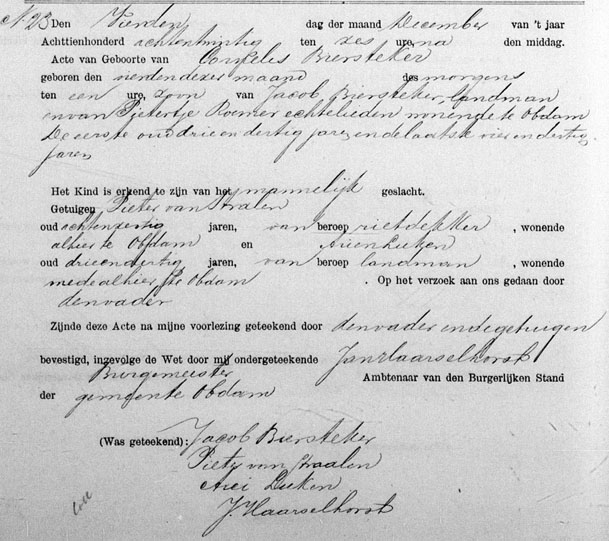 N. 23 Den Vierden dag der maand December van 't jaar
Achttienhonderd achtentwintig ten zes ure, na den middag.
Acte van Geboorte van Cornelis Biersteker
geboren den vierden dezer maand des morgens
ten een ure, zoon van Jacob Biersteker, landman
en van Pietertje Roemer echtelieden wonende te Obdam
De eerste oud drie en dertig jaren, en de laatste vier en dertig
jaren
Het Kind is erkend te zijn van het mannelijk geslacht.
Getuigen Pieter van Stralen
oud achtenzestig jaren, van beroep rietdekker, wonende
alhier te Obdam en
oud drieendertig jaren, van beroep landman, wonende
mede alhier te Obdam. Op het verzoek aan ons gedaan door
den vader
Zijnde deze Acte na mijne voorlezing geteekend door den vader en de getuigen
bevestigd, ingevolge de Wet door mij ondergeteekende Jan Haarselhorst
Burgemeester Ambtenaar van den Burgerlijken Stand
der gemeente Obdam
(Was geteekend): Jacob Biersteker
Pieter van Straalen
J. Haarselhorst